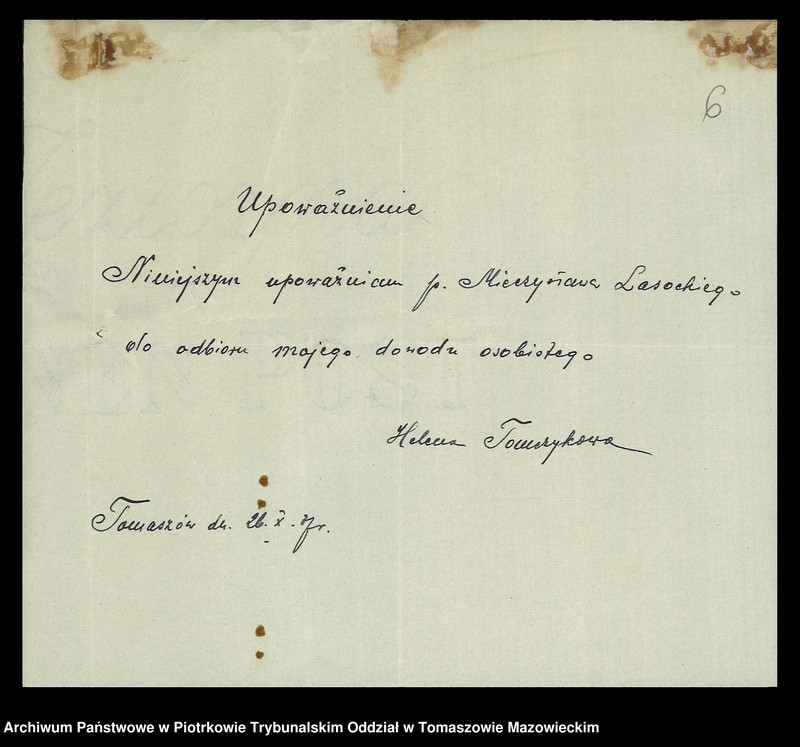 6
Upoważnienie
Niniejszym upoważniam p. Mieczysława Lasockiego
do odbioru mojego dowodu osobistego
Helena Tomczykowa
Tomaszów dn. 26. X. 37r.
Archiwum Państwowe w Piotrkowie Trybunalskim Oddział w Tomaszowie Mazowieckim